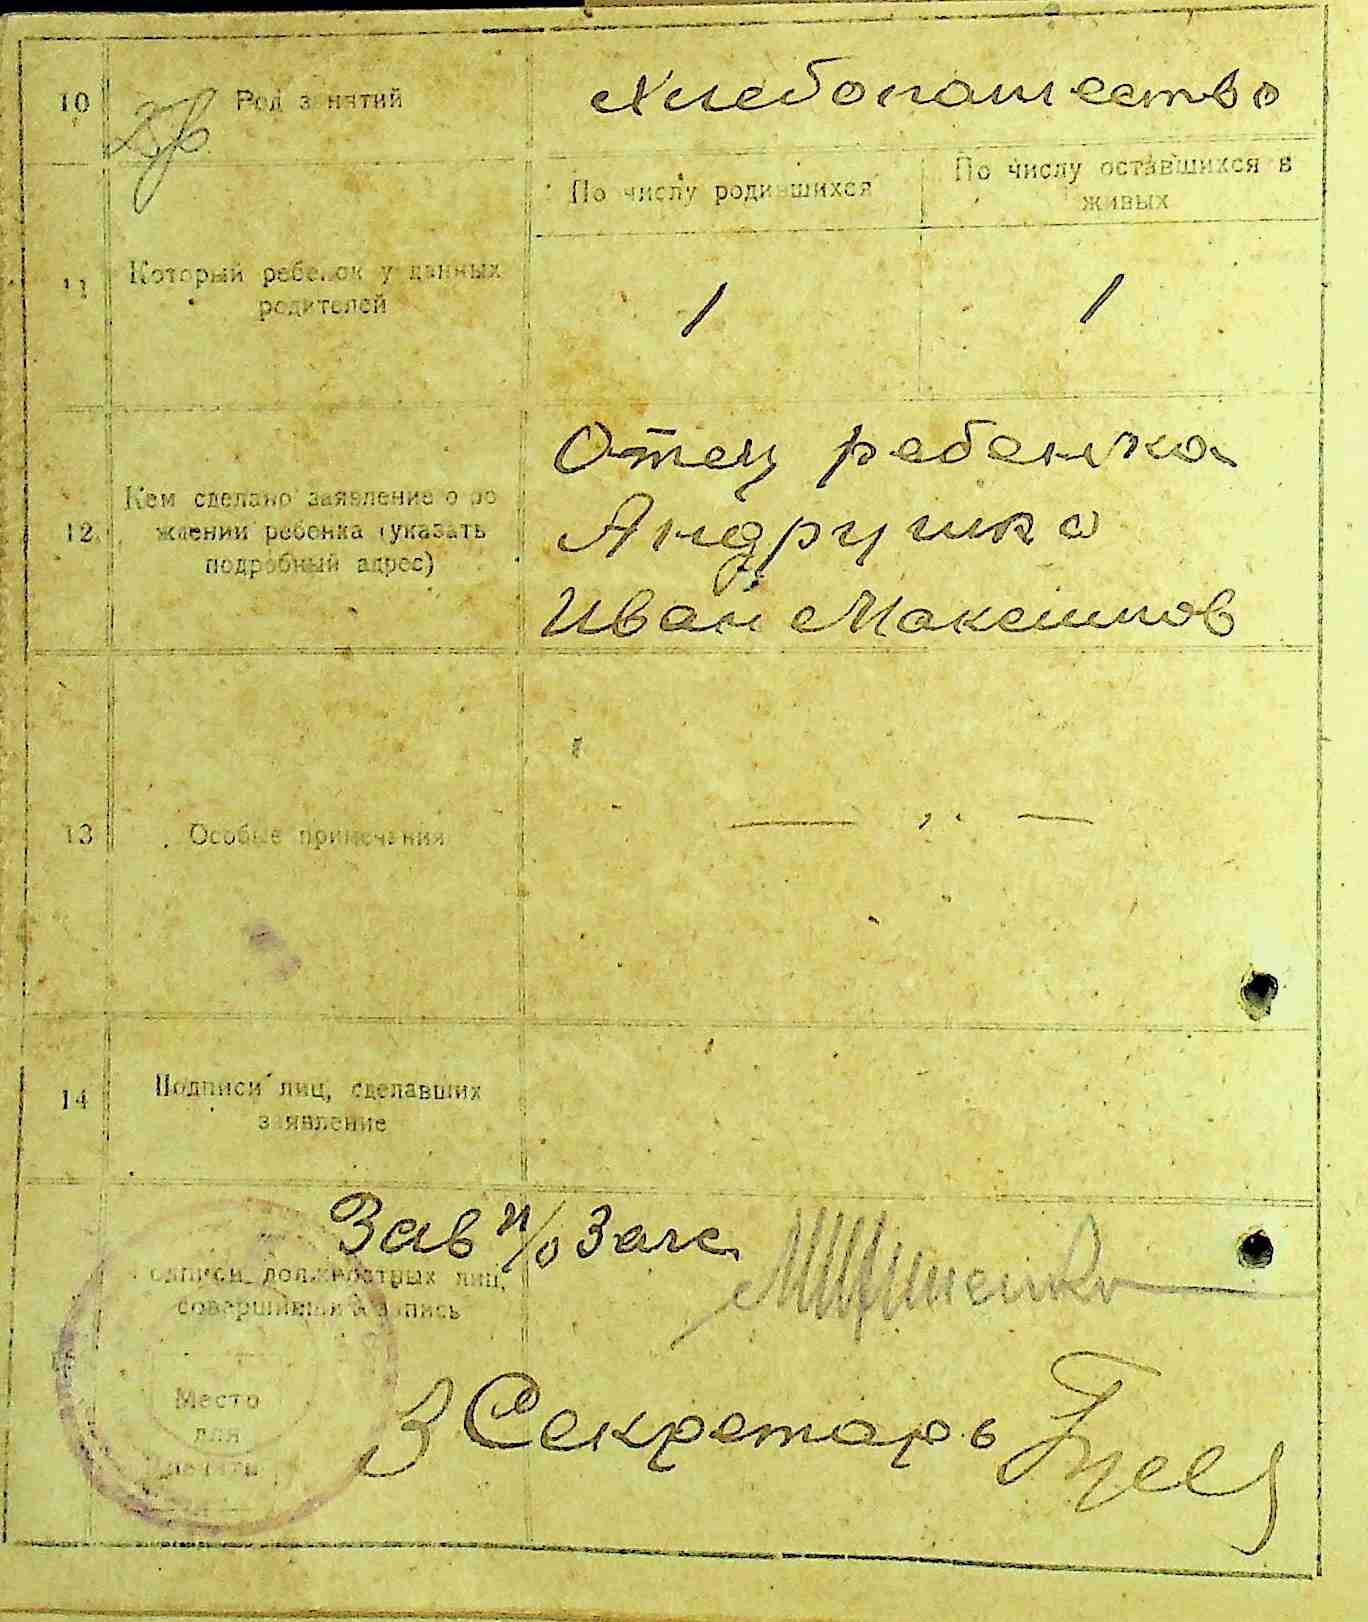 10 Род занятий Хлебопашество
По числу родившихся По числу оставшихся в
живых
11 Который ребенок у данных
родителей
1 1
Отец ребенка
12 Кем сделано заявление о ро
ждении ребенка (указать
подробный адрес)
Андрушко
Иван Максимов
13 Особые примечания — " —
14 Подписи лиц, сделавших
заявление
Зав п/о Загс
Подписи должностных лиц,
совершивших запись
Место
для
печати
Секретарь